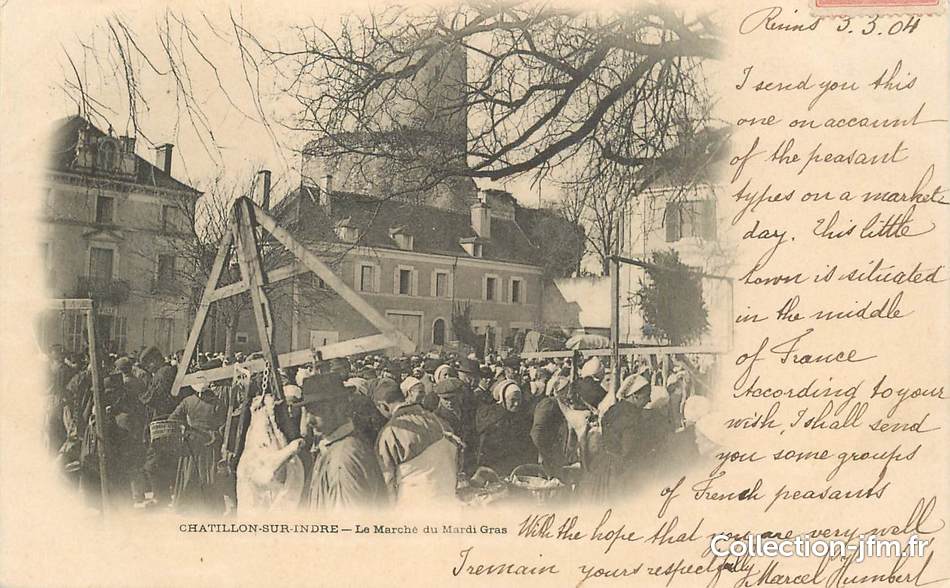 Reims 3.3.04
I send you this
one on account
of the peasant
types on a market
day. This little
town is situated
in the middle
of France
According to your
wish, I shall send
you some groups
of French peasants
CHATILLON-SUR-INDRE — Le Marché du Mardi Gras
With the hope that you are very well
I remain yours respectfully
Marcel Humbert
Collection-jfm.fr